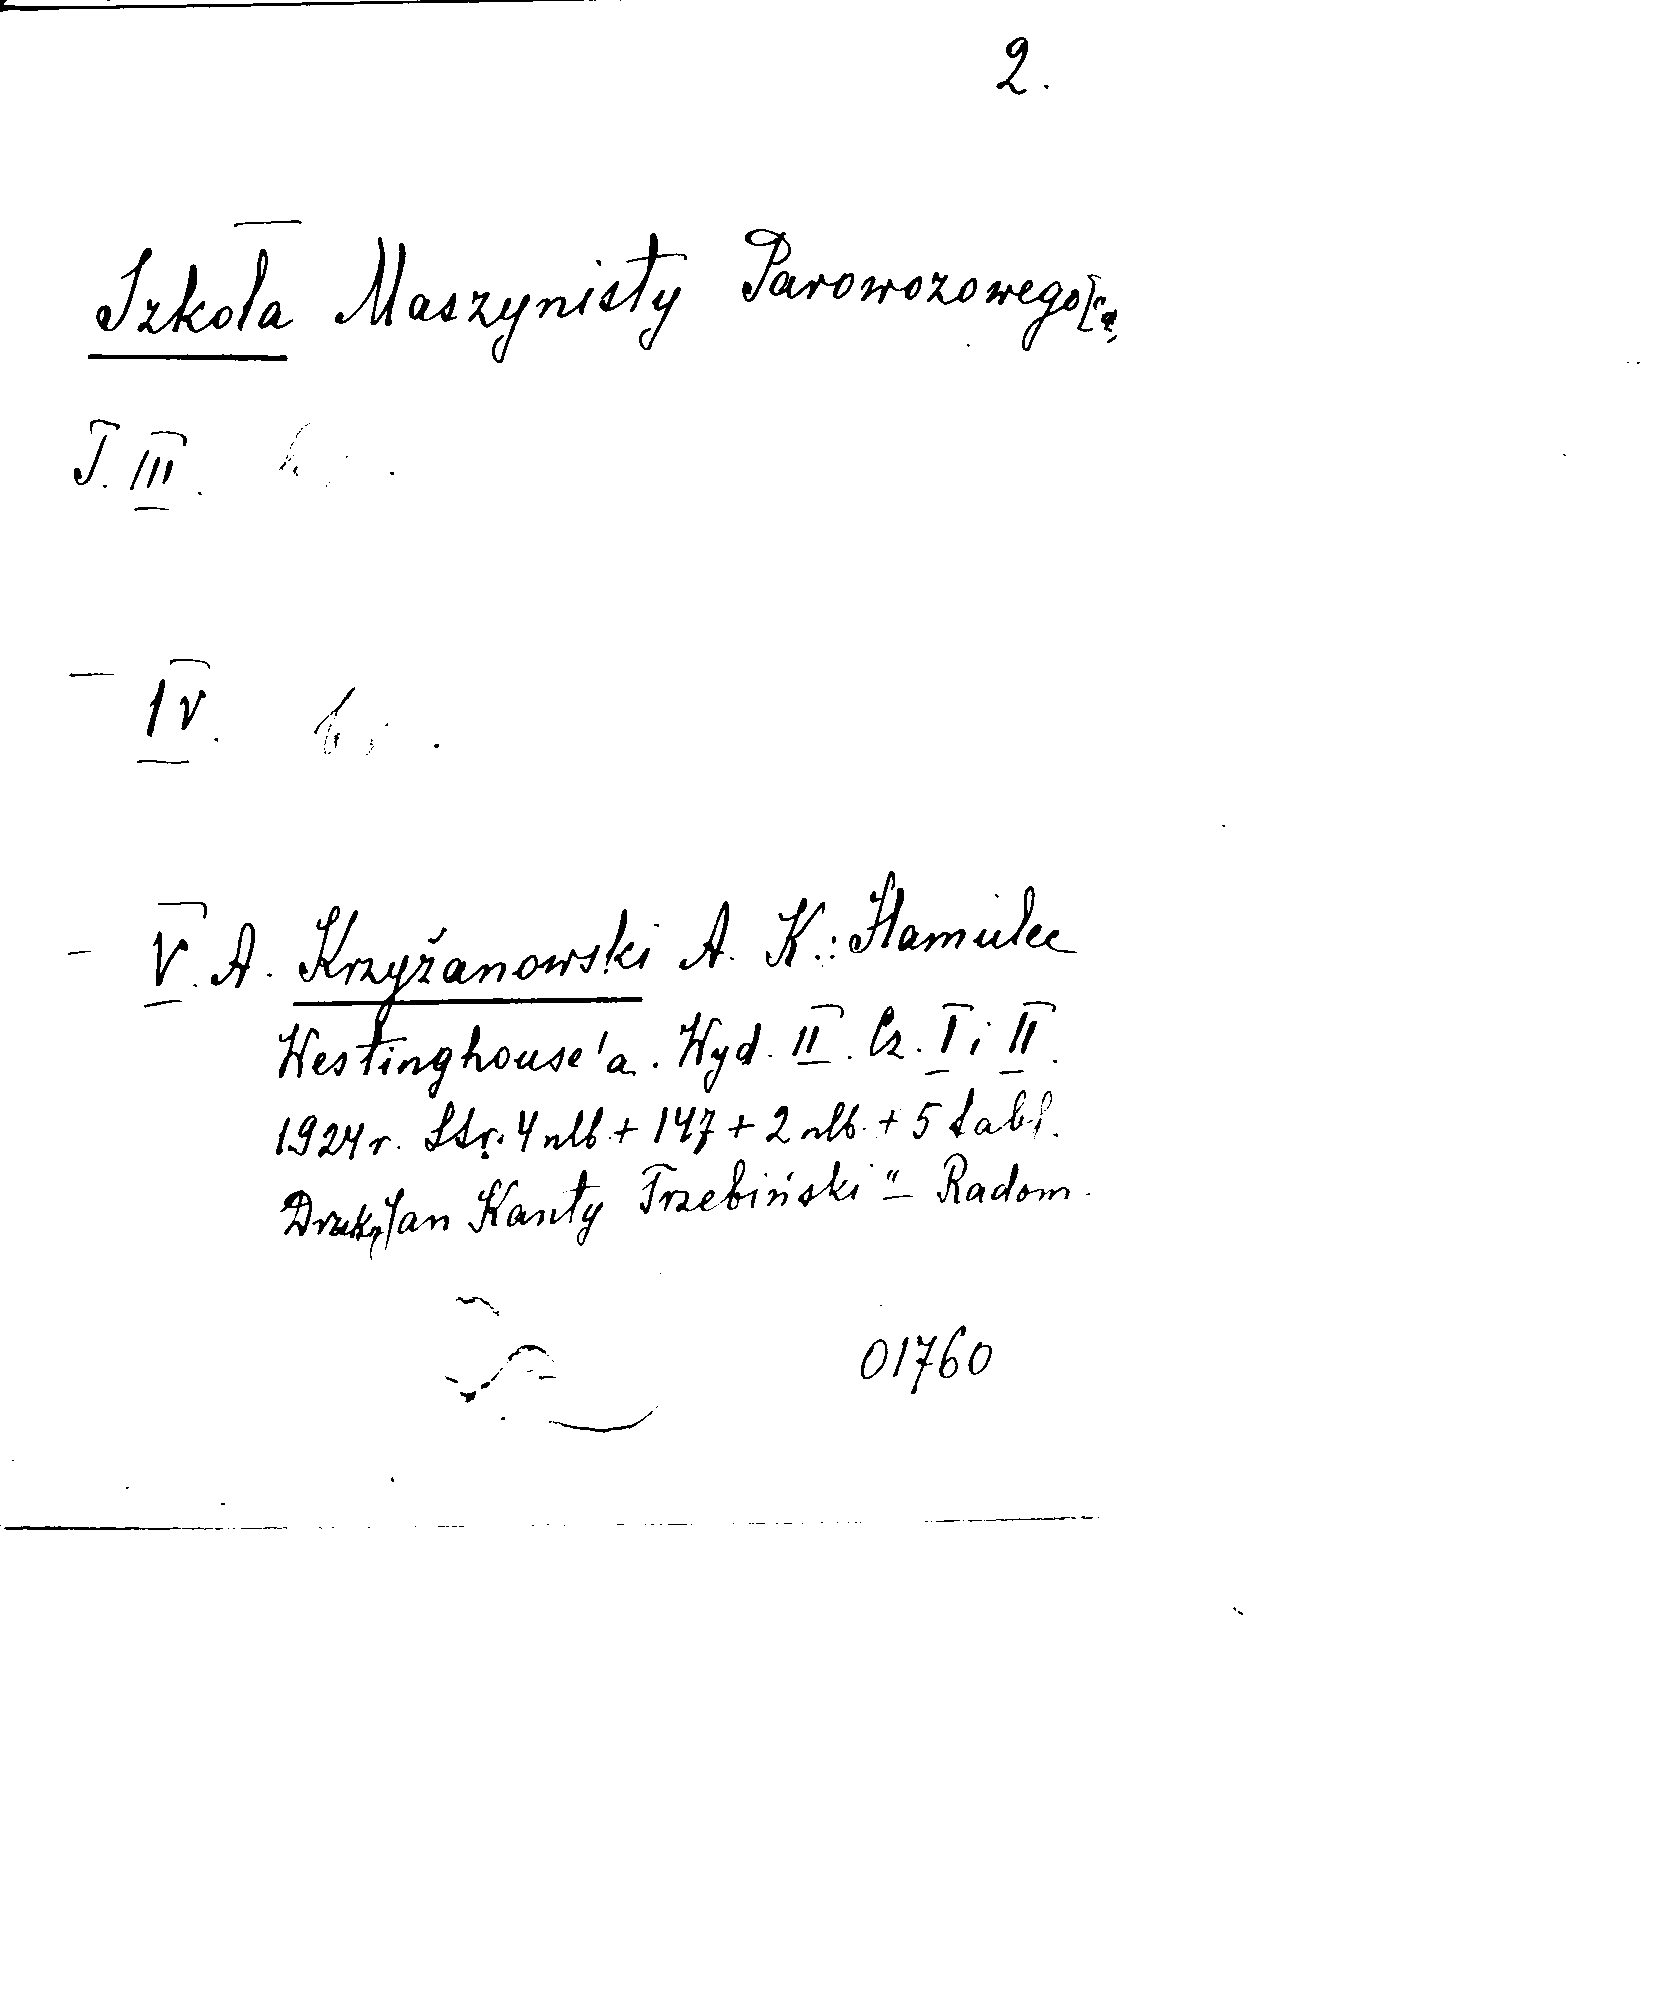 2.
Szkoła Maszynisty Parowozowego
T. III.
— IV.
— V. A. Krzyżanowski A. K.: Hamulec
Westinghouse'a. Wyd. II. Cz. I i II.
1924 r. Str. 4 nlb + 147 + 2 nlb. + 5 tabl.
Druk. „Jan Kanty Trzebiński" – Radom.
01760